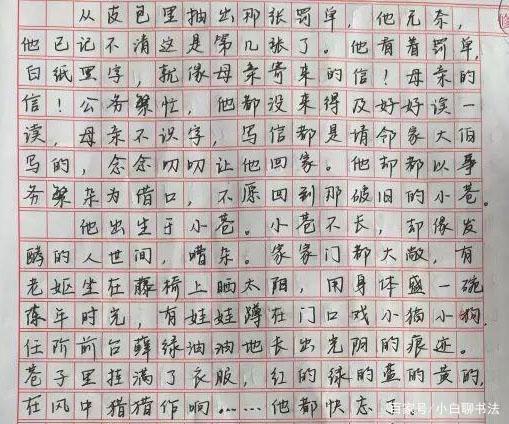 从皮包里抽出那张罚单，他无奈，
他已记不清这是第几张了。他看着罚单，
白纸黑字，就像母亲寄来的信！母亲的
信！公务繁忙，他都没来得及好好读一
读，母亲不识字，写信都是请邻家大伯
写的，念念叨叨让他回家。他却都以事
务繁杂为借口，不愿回到那破旧的小巷。
他出生于小巷。小巷不长，却像发
酵的人世间，嘈杂。家家门都大敞，有
老妪坐在藤椅上晒太阳，用身体盛一碗
陈年时光，有娃娃蹲在门口戏小猫小狗，
任阶前台藓绿油油地长出光阴的痕迹。
巷子里挂满了衣服，红的绿的蓝的黄的，
在风中猎猎作响……他都快忘了
百家号/小白聊书法